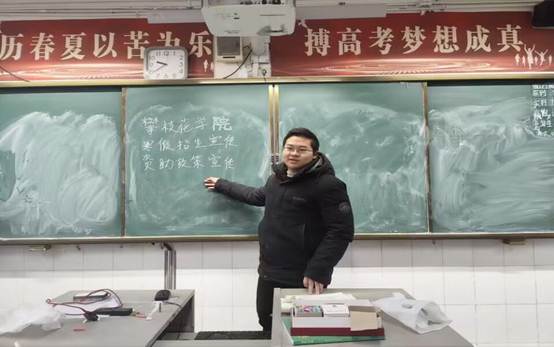 历春夏以苦为乐 搏高考梦想成真
攀枝花学院
寒假招生宣传
资助政策宣传